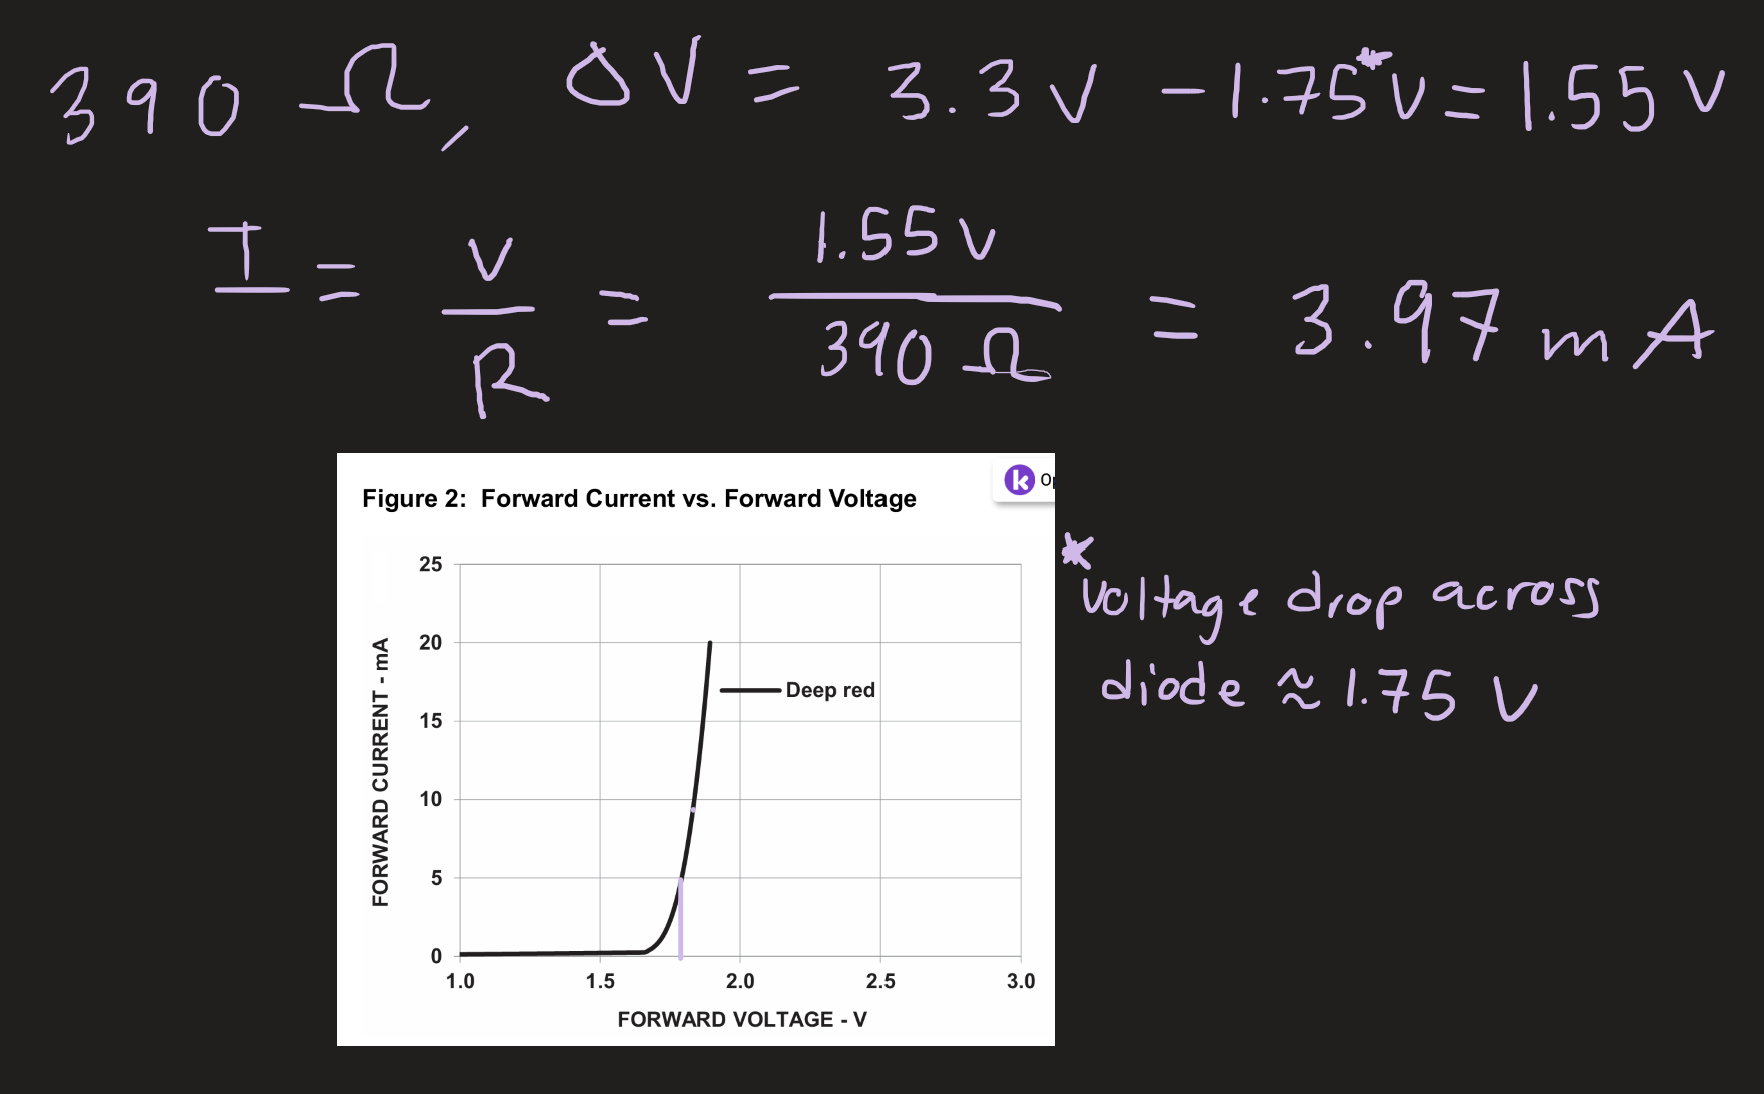 390 Ω, ΔV = 3.3 V - 1.75* V = 1.55 V
I = V/R = 1.55 V / 390 Ω = 3.97 mA
k Op
Figure 2: Forward Current vs. Forward Voltage
25
20
15
10
5
0
FORWARD CURRENT - mA
Deep red
1.0 1.5 2.0 2.5 3.0
FORWARD VOLTAGE - V
*
voltage drop across
diode ≈ 1.75 V